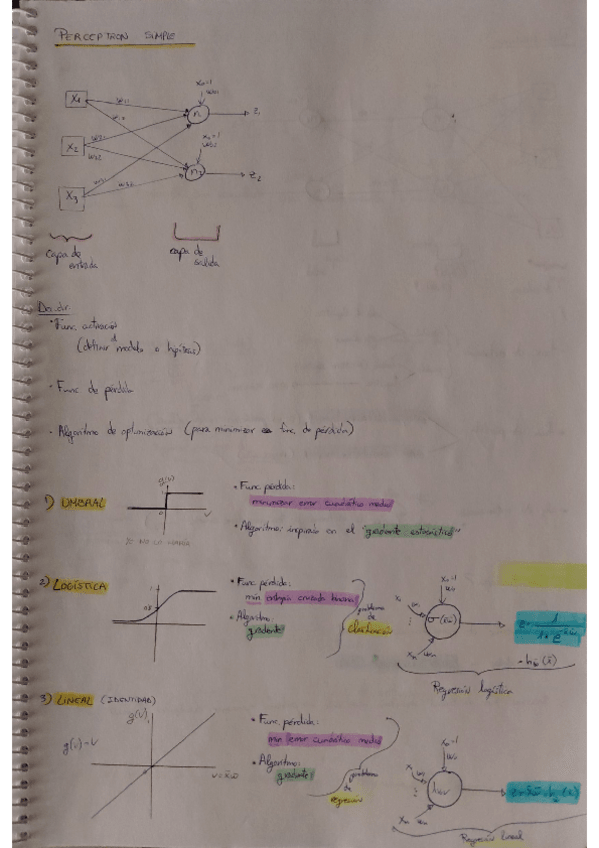 PERCEPTRON SIMPLE
X1
X2
X3
x0=1
n1
z1
x0=1
n2
z2
Capa de
entrada
capa de
salida
Decidir
· Func. activación
(definir el modelo o hipótesis)
· Func de pérdida
· Algoritmo de optimización (para minimizar func. de pérdida)
1) UMBRAL
g(v)
0
v
· Func. pérdida:
minimizar error cuadrático medio
· Algoritmo: inspirado en el "gradiente estocástico"
2) LOGÍSTICA
1
· Func pérdida:
min entropía cruzada binaria
· Algoritmo:
gradiente
problema
de
clasificación
x0=1
w0
Regresión logística
3) LINEAL (IDENTIDAD)
g(v)
g(v)=v
· Func. pérdida:
min error cuadrático medio
· Algoritmo:
gradiente
problema
de
regresión
x0=1
w0
Regresión lineal